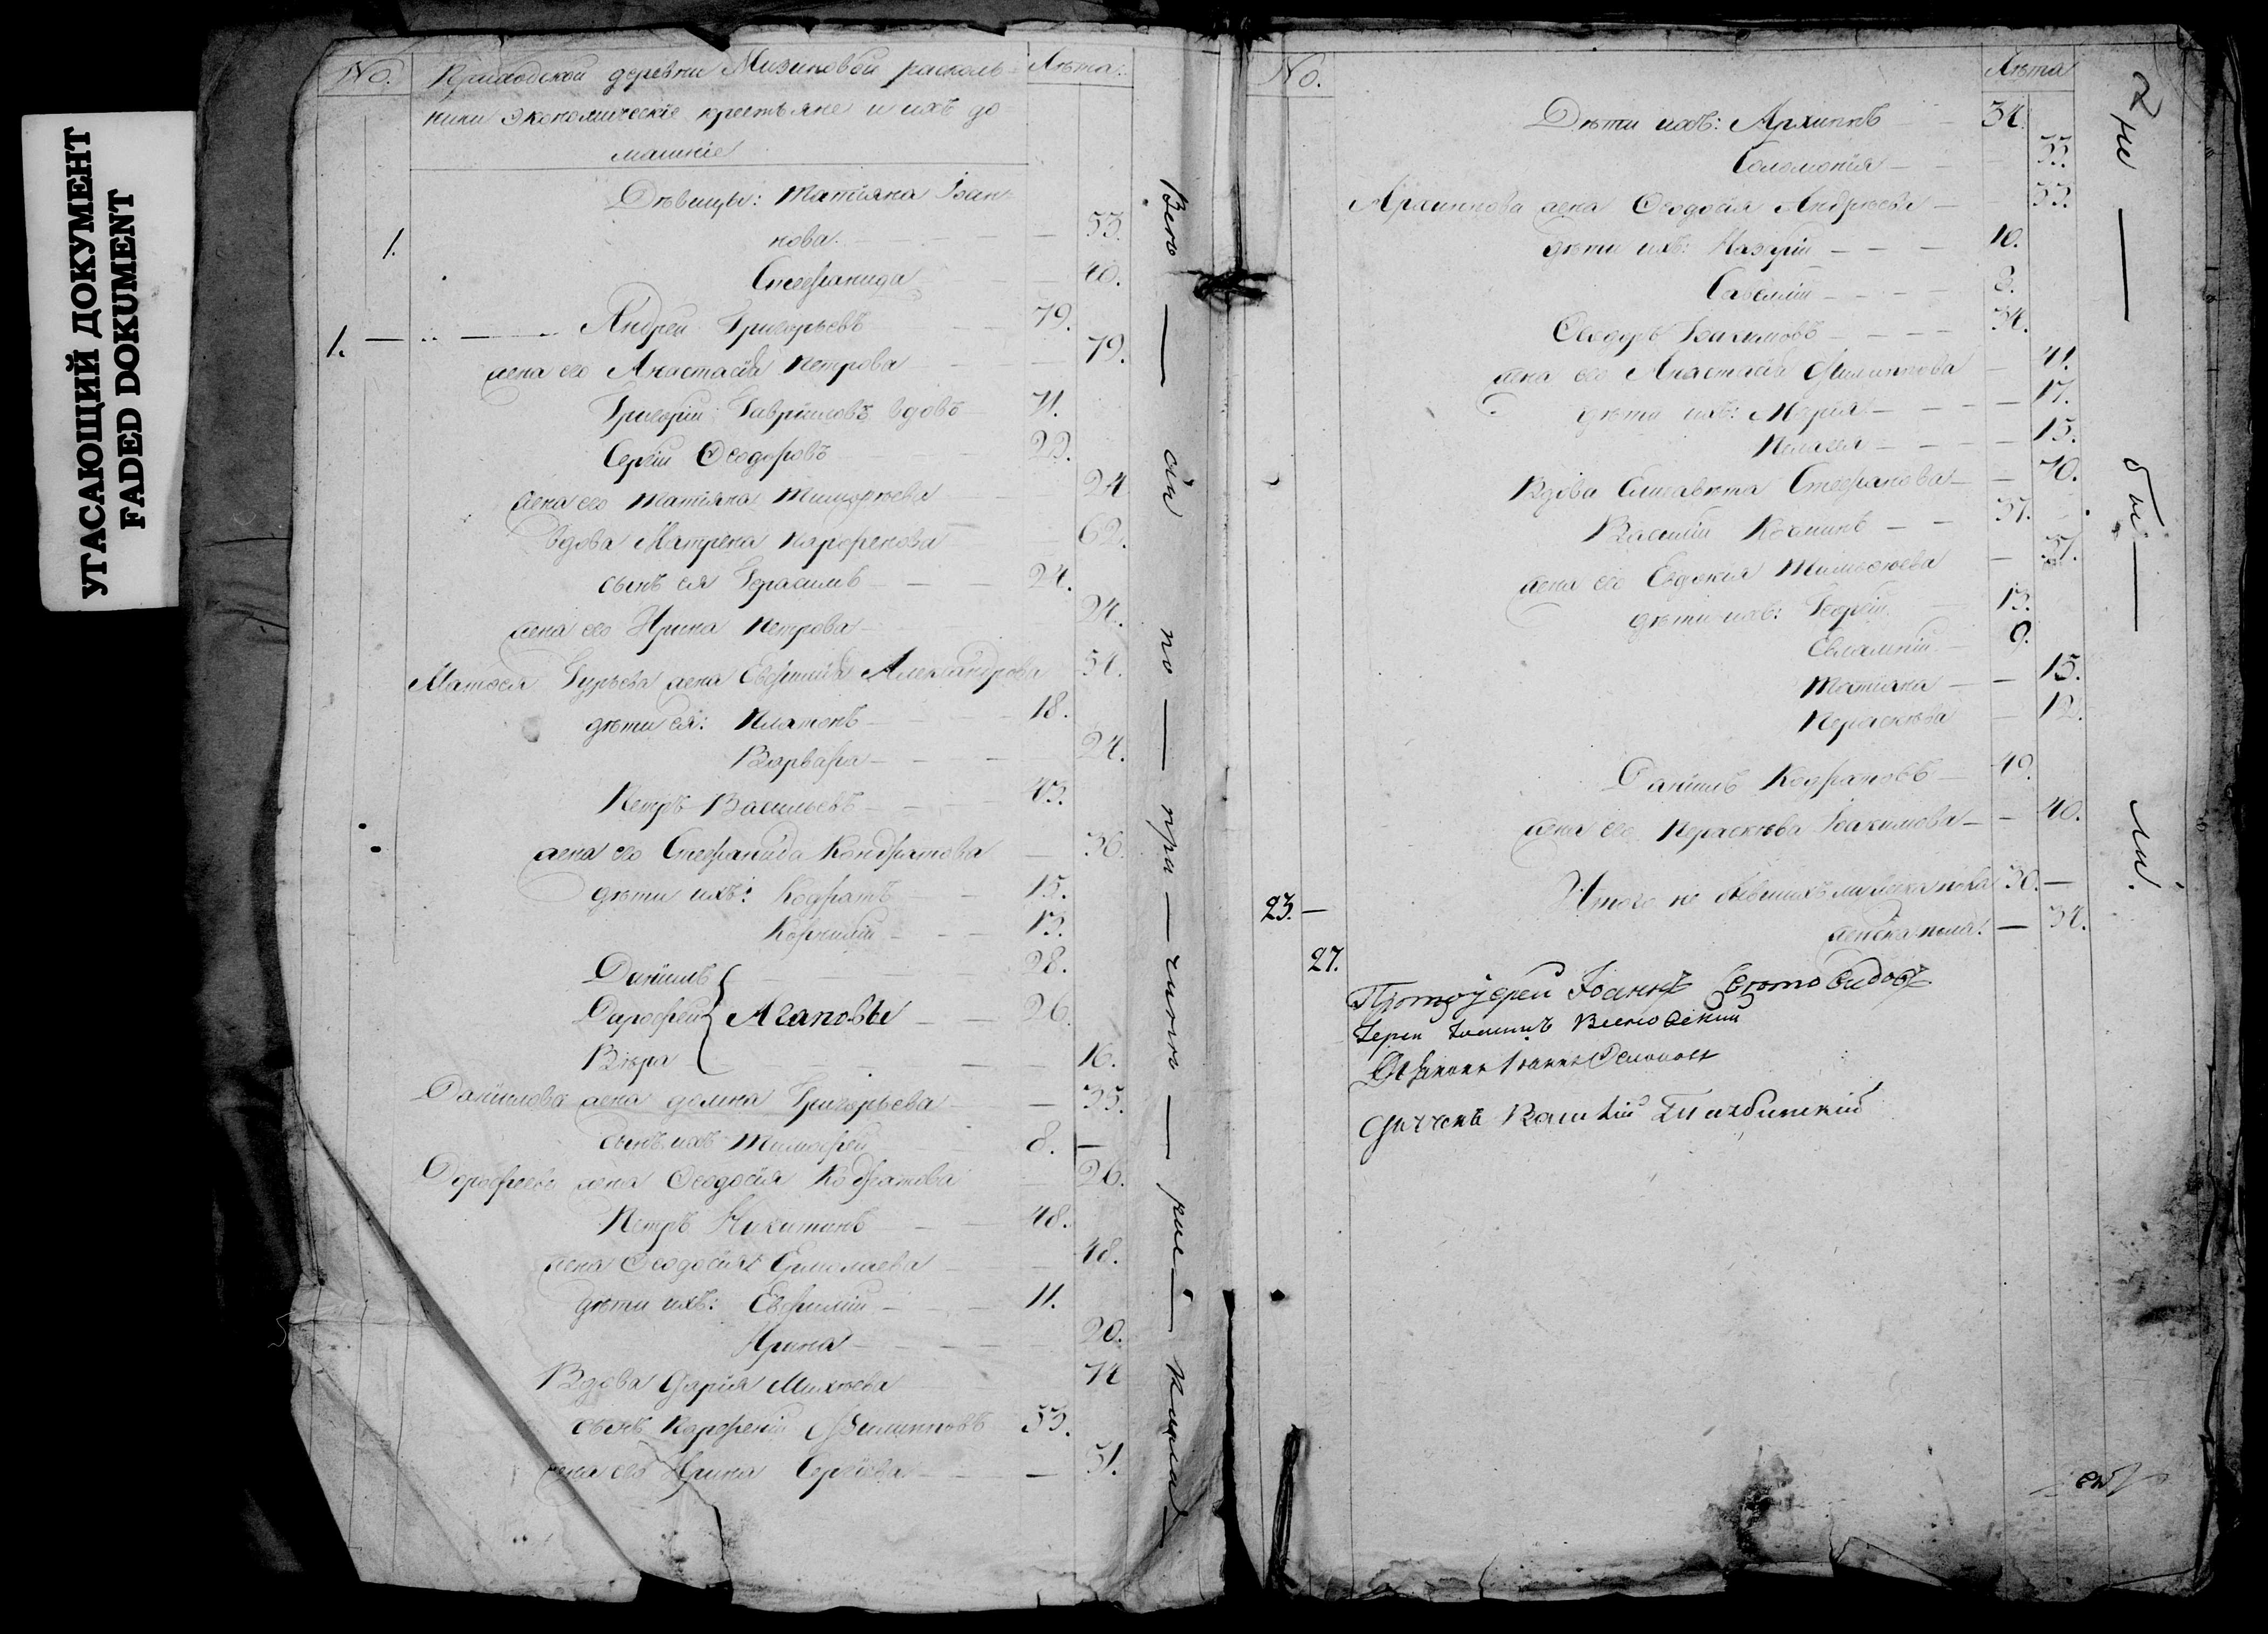 УГАСАЮЩИЙ ДОКУМЕНТ
FADED DOKUMENT
No. Приходской деревни Мизиновой расколь- Лѣта:
ники экономическіе крестьяне и ихъ до
машніе
Дѣвицы: Татіяна Іоан-
1. нова. — 53.
Стефанида 40.
1. — Андрей Григорьевъ — 79.
жена его Анастасія Петрова — 79.
Григорій Гавріиловъ вдовъ 71.
Сергій Ѳеодоровъ 22.
жена его Татіяна Тимофѣева — 24
вдова Матрена Парфенова — 62.
сынъ ея Герасимъ — 24.
жена его Ирина Петрова — 24.
Матѳея Гурьева жена Евфимія Александрова 54.
дѣти ея: Платонъ — 18.
Варвара — 24.
Петръ Васильевъ — 43.
жена его Стефанида Кондратова — 36.
дѣти ихъ: Кодратъ — 15.
Корнилій — 13.
Даніилъ — 28.
Дарофей Агаповы — 26.
Вѣра — 16.
Даніилова жена Домна Григорьева — 35.
сынъ ихъ Тимофей 8. —
Дорофеева жена Ѳеодосія Кодратова 26.
Петръ Никитинъ — 48.
жена Ѳеодосія Ермолаева — 48.
дѣти ихъ: Евфимій — 11.
Ирина — 20.
Вдова Дарія Михеева 74
сынъ Парфеній Филипповъ 53.
жена его Ирина Сергіева — 51.
сій — по — при —
No. Лѣта
Дѣти ихъ: Архиппъ — 34.
Соломонія — 33.
Архиппова жена Ѳеодосія Андреева — 33.
дѣти ихъ: Назарій — 10.
Савелій — 3.
Ѳеодоръ Іоакимовъ — 34.
жена его Анастасія Филиппова — 41.
дѣти ихъ: Марія — 17.
Пелагея — 15.
Вдова Елисавета Стефанова — 70.
Василій Козминъ — 37.
жена его Евдокія Тимофеева — 37.
дѣти ихъ: Георгій 13.
Евлампій — 9.
Татіяна — 15.
Параскева — 12.
Даніилъ Кодратовъ — 49.
жена его Параскева Іоакимова — 40.
23. — Итого не бывшихъ мужеска пола 30. —
женска пола: — 34.
27.
Протоіерей Іоаннъ
Іерей
Діаконъ
Дьячекъ Василій